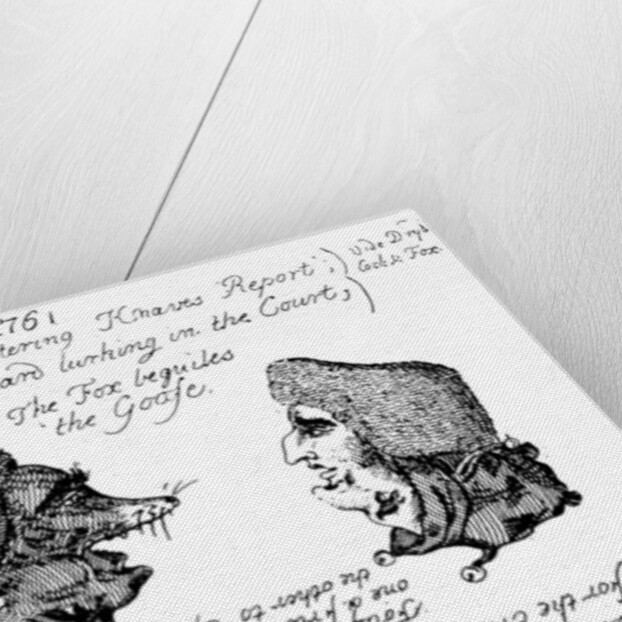 1761
tering Knaves Report;
and lurking in the Court,
The Fox beguiles
the Goose.
Vide Dryd
Cock & Fox.
the other to
one a
for the